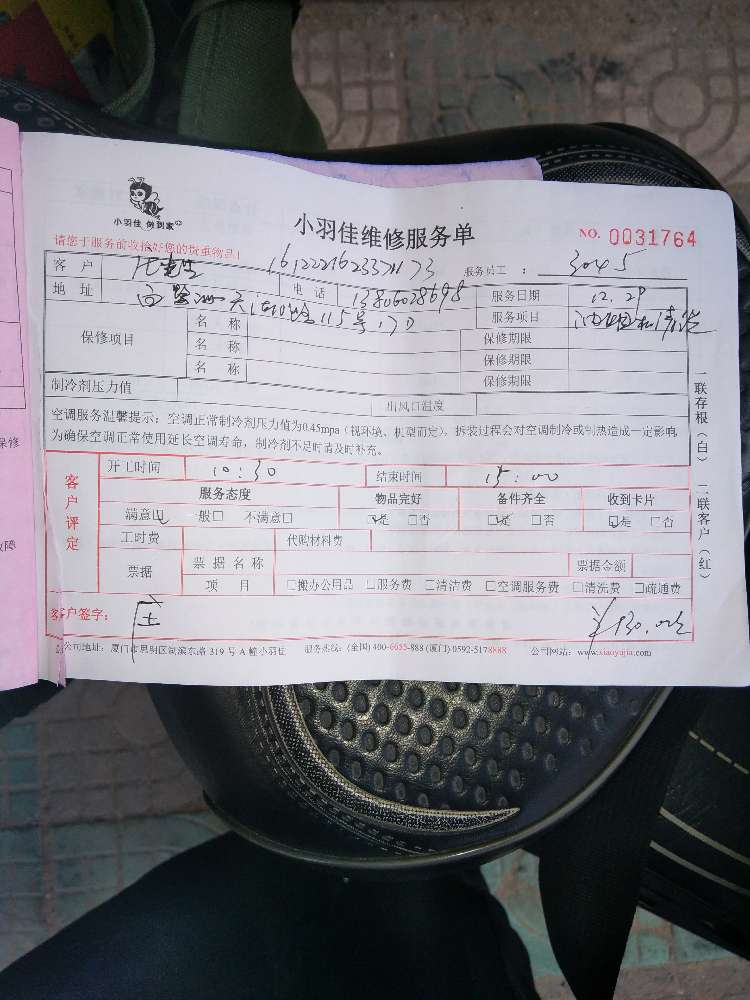 小羽佳 做到家
小羽佳维修服务单
NO. 0031764
请您于服务前收拾好您的贵重物品!
客 户 16122216233271173 服务员工 : 3045
地 址 115号 电 话 13806028698 服务日期 12.29
服务项目 油烟机清洗
保修项目 名 称 保修期限
名 称 保修期限
名 称 保修期限
制冷剂压力值 出风口温度
空调服务温馨提示: 空调正常制冷剂压力值为0.45mpa (视环境、机型而定), 拆装过程会对空调制冷或制热造成一定影响,
为确保空调正常使用延长空调寿命, 制冷剂不足时请及时补充。
客户评定
开工时间 10:30 结束时间 15:00
服务态度 物品完好 备件齐全 收到卡片
满意 一般 不满意 是 否 是 否 是 否
工时费 代购材料费
票据 票 据 名 称 票据金额
项 目 搬办公用品 服务费 清洁费 空调服务费 清洗费 疏通费
客户签字: ¥130.00
公司地址: 厦门市思明区湖滨东路 319 号 A 幢小羽佳 服务热线: (全国) 400-6655-888 (厦门) 0592-5178888 公司网站: www.xiaoyujia.com
一联存根(白) 二联客户(红)
保修
故障